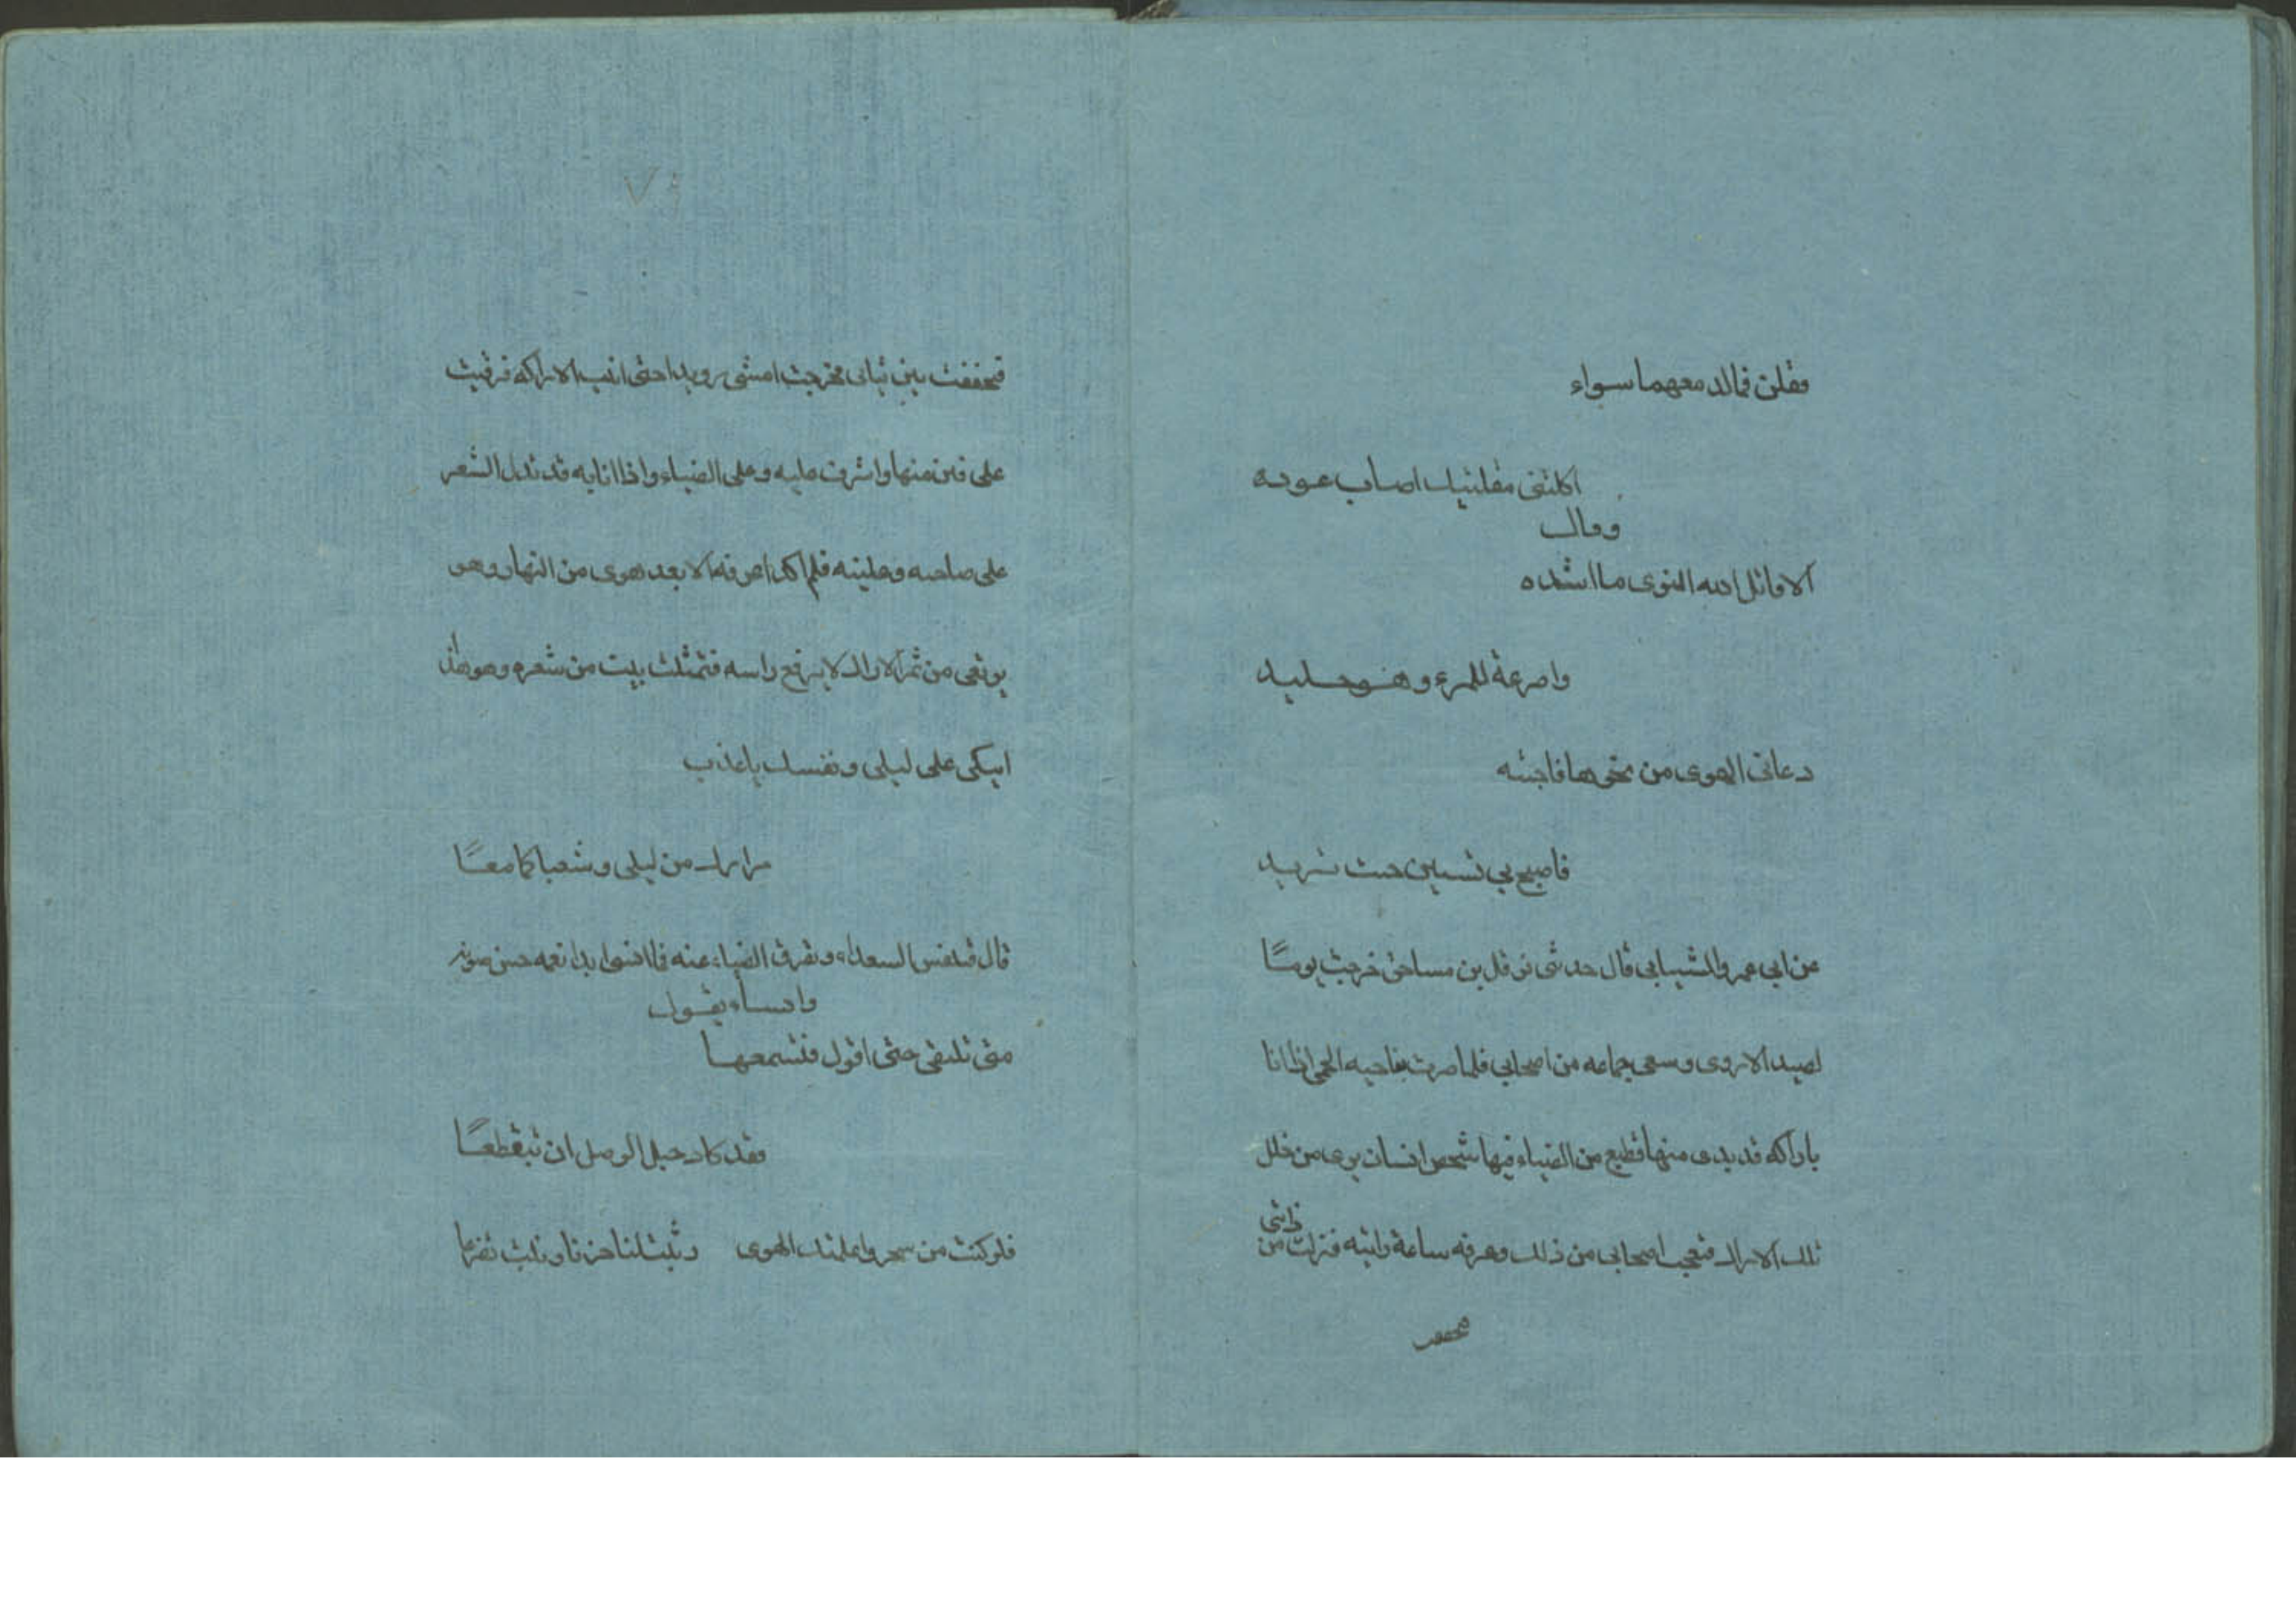 فقلن فمالد معهما سواء
اكلتى مقلتيك اصاب عوده
وقال
الا قاتل الله النوى ما اشده
واصرعة للمرء وهو جليد
دعانى الهوى من نحوها فاجبته
فاصبح بي تسين حيث تريد
عن ابي عمرو الشيبابى قال حدثى نوفل بن مساحق خرجت يومًا
لصيد الاروى وسعى جماعه من اصحابي فلما صرت بناحيه الحمى اذا انا
باراكه قد بدى منها قطيع من الضباء فيها شخص انسان يرى من خلل
تلك الاراك فتعجب اصحابى من ذلك وعرفه ساعة راتيه فنزلت من
فتخففت بين ثيابى فخرجت امشى رويدا حتى اتيت الاراكه فرقيت
على فنن منها واشرفت عليه وعلى الضباء واذا انا به قد تدلى الشعر
على حاجبه وعلينه فلم اكد اعرفه الا بعد هوى من النهار وهو
يرتعى من ثمر الاراك لا يرفع راسه فتمثلت ببيت من شعره وهو هذا
اتبكى على ليلى ونفسك باعدت
مزارك من ليلى وشعبا كما معًا
قال فتنفس السعداء وتفرق الضباء عنه فما انسى ابدا نغمه حسن صوته
وانساه يقول
متى نلتقى حتى اقول فتسمعها
فقد كاد حبل الوصل ان تيقطعًا
فلو كنت من صخر واعلمتك الهوى وثبت لنا حزنا وثبت تفزعا